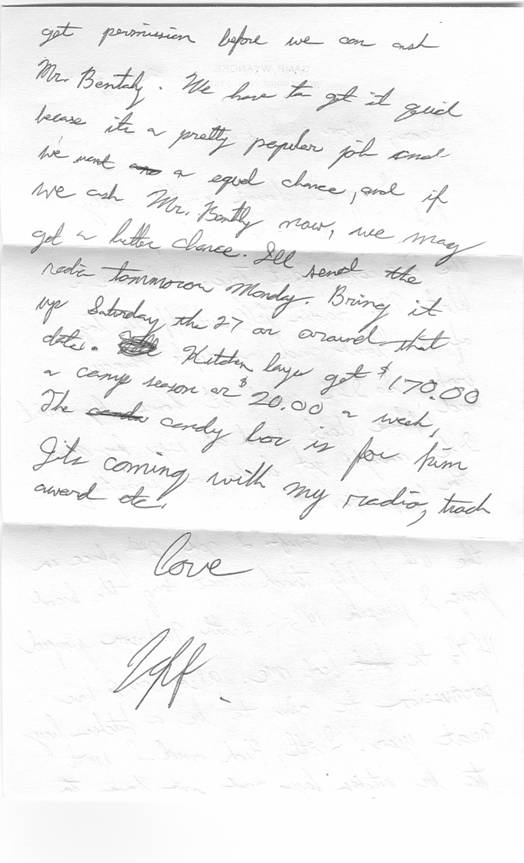 get permission before we can ask
Mr. Bently. We have to get it quick
becase its a pretty populer job and
we want a equal chance, and if
we ask Mr. Bently now, we may
get a better chance. I'll send the
radio tommorow Monday. Bring it
up Saturday the 27 or around that
date. Kitchen boys get $170.00
a camp season or $20.00 a week,
The candy box is for Kim
Its coming with my radio, track
award etc.
love
Jeff